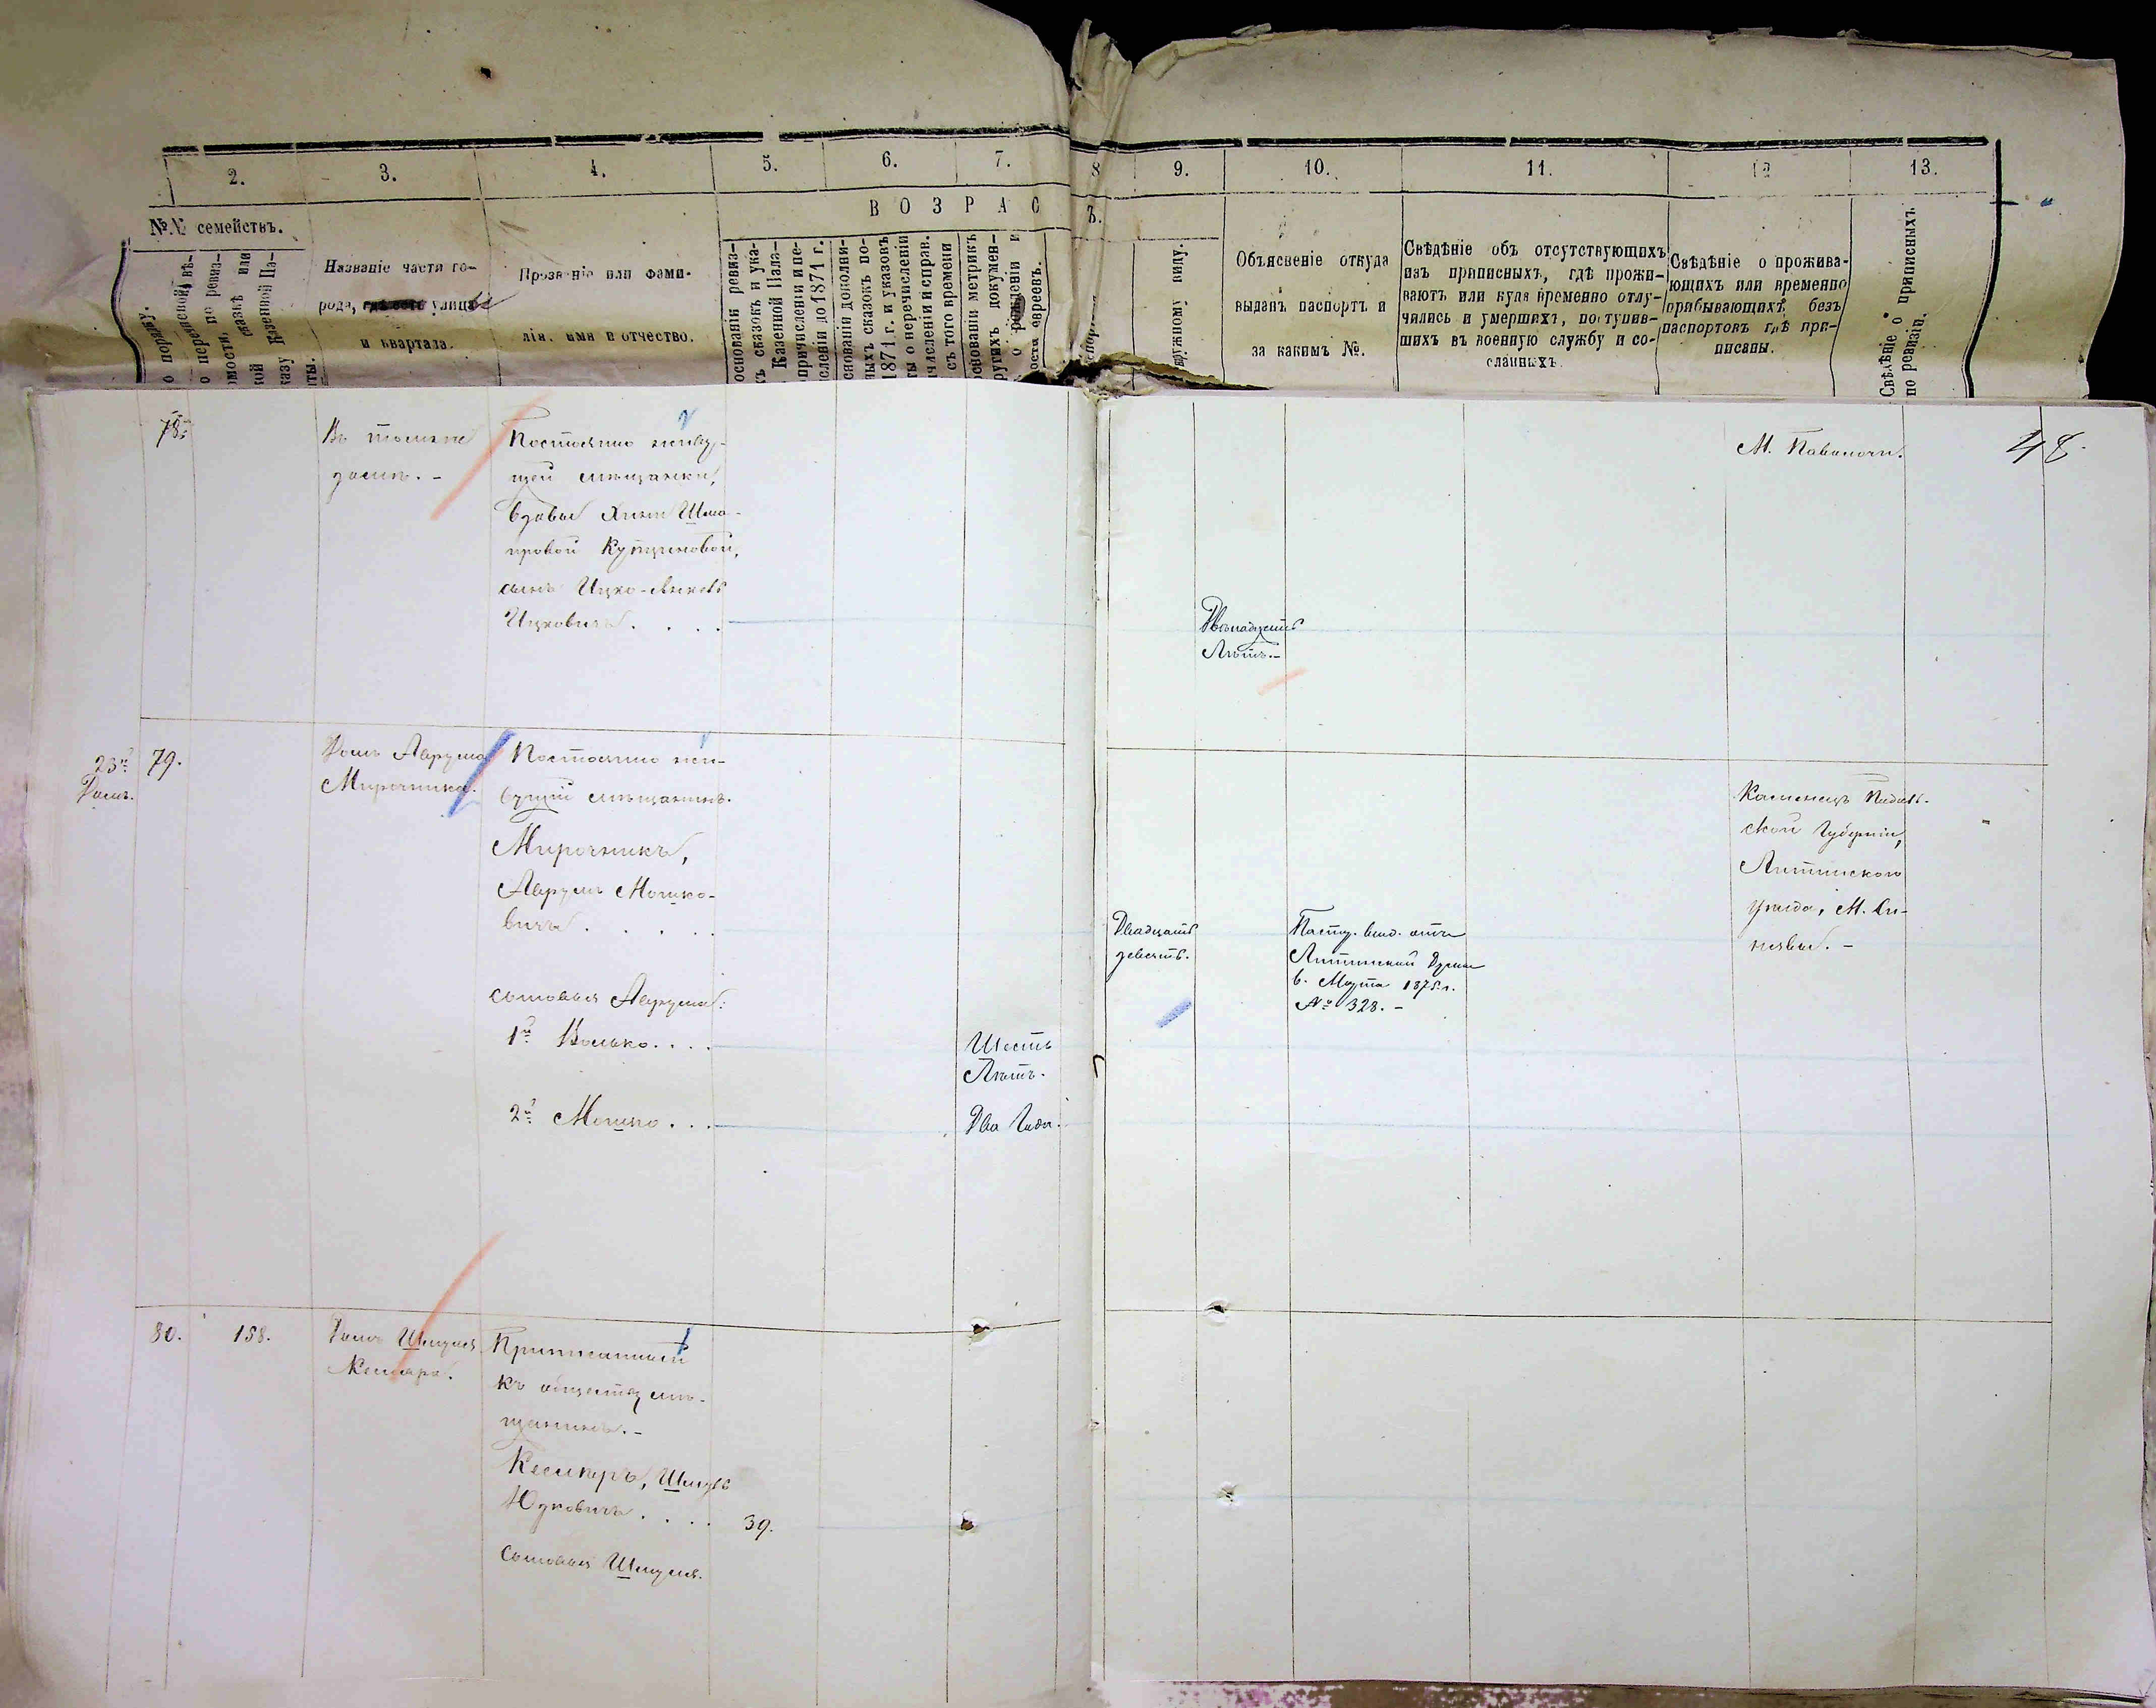 2.
3.
4.
5.
6.
7.
8
9.
10.
11.
12
13.
В О З Р А С
Ъ.
№№ семействъ.
о порядку.
о переписной вѣ-
домости, по ревиз-
кой сказкѣ или
казу Казенной Па-
ты.
Названіе части го-
рода, улицы
и квартала.
Прозваніе или фами-
лія, имя и отчество.
основаніи ревиз-
хъ сказокъ и ука-
Казенной Пала-
причисленіи и пе-
сленіи до 1871 г.
снованіи дополни-
ныхъ сказокъ по-
1871 г. и указовъ
ты о перечисленіи
ичисленіи и справ.
съ того времени
основаніи метрикъ
ругихъ докумен-
о рожденіи и
ости евреевъ.
ружному виду.
Объясненіе откуда
выданъ паспортъ и
за какимъ №.
Свѣдѣніе объ отсутствующихъ
изъ приписныхъ, гдѣ прожи-
ваютъ или куда временно отлу-
чились и умершихъ, поступив-
шихъ въ военную службу и со-
сланныхъ.
Свѣдѣніе о прожива-
ющихъ или временно
прибывающихъ безъ
паспортовъ гдѣ при-
писаны.
Свѣдѣніе о приписныхъ
по ревизіи.
48.
78.
Въ томъ же
домѣ. -
Постоянно живу-
щей мѣщанки,
вдовы Хини Шма-
ировой
сынъ Ицко-
Ицковичъ . . . .
Двѣнадцать
Лѣтъ. -
М. Паволочи.
23й
Домъ.
79.
Домъ Аврума
Мирочника.
Постоянно жи-
вущій мѣщанинъ.
Мирочникъ,
Аврумъ Мошко-
вичъ . . . . .
Двадцать
девять.
Паспор. выд. отъ
Литинской Думы
6. Марта 1875 г.
№ 328. -
Каменецъ Подоль-
ской Губерніи,
Литинского
уѣзда, М.
сыновья Аврума:
1й Волько. . . .
Шесть
Лѣтъ.
2й Мошко . . .
Два Года.
80.
158.
Домъ Шмуля
Кесларя.
Приписанный
къ обществу мѣ-
щанинъ. -
Кесляръ, Шмуль
Юдковичъ . . . .
39.
Сыновья Шмуля.